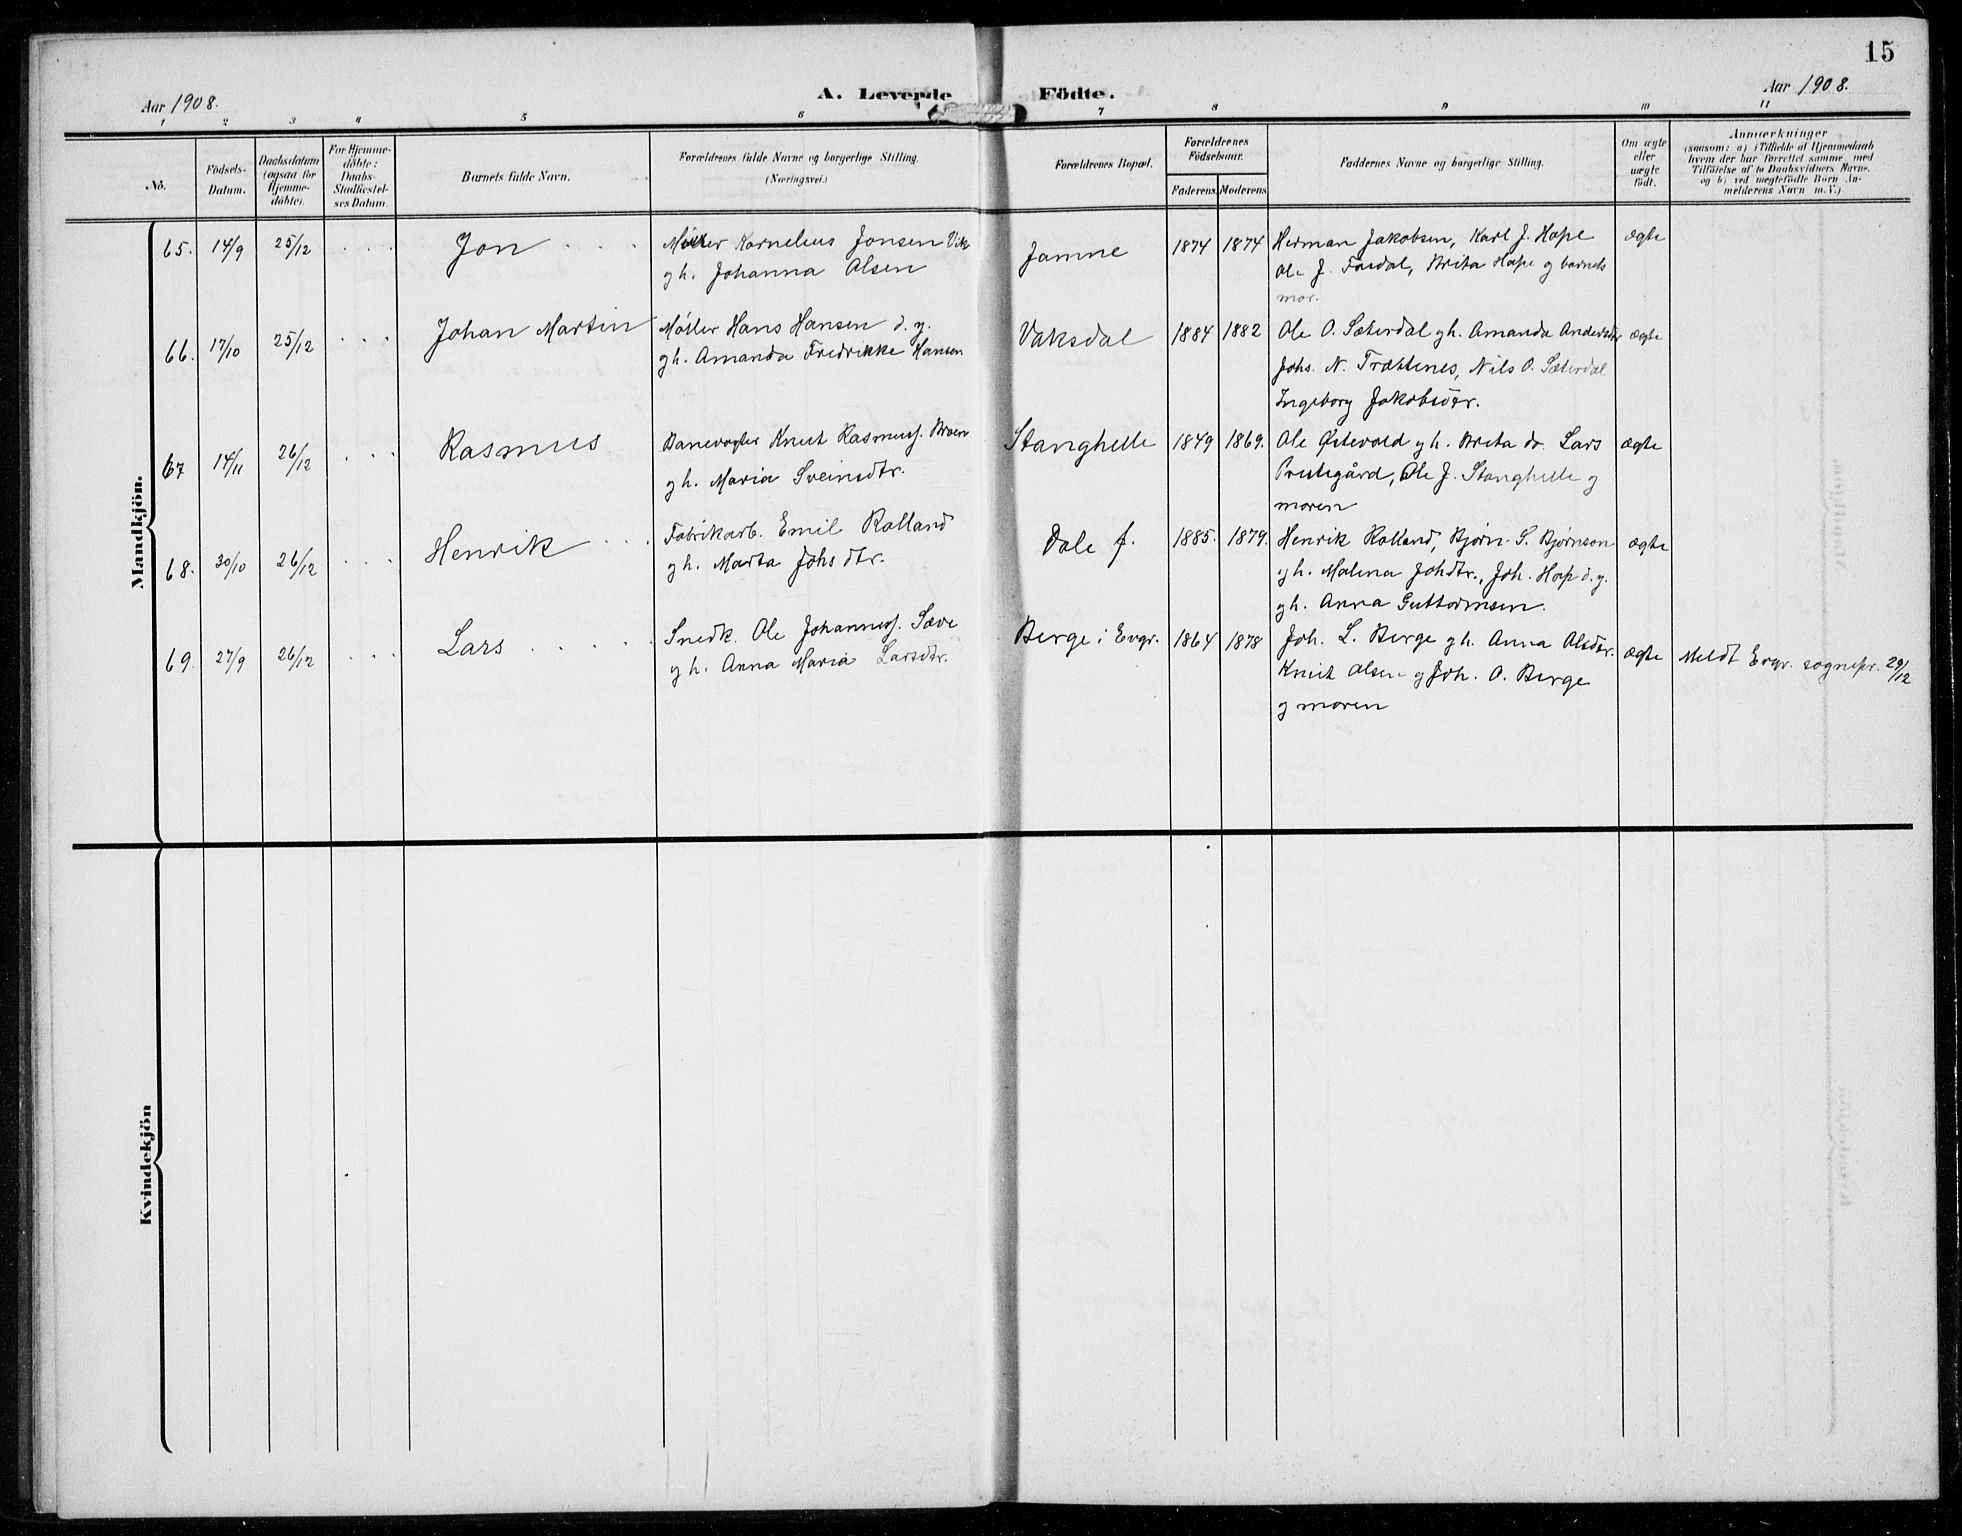 15
Aar 1908.
A. Levende
Födte.
Aar 1908.
1 2 3 4 5 6 7 8 9 10 11
No.
Födsels-
Datum.
Daabsdatum
(ogsaa for
Hjemme-
döbte).
For Hjemme-
döbte:
Daabs-
Stadfæstel-
ses Datum.
Barnets fulde Navn.
Forældrenes fulde Navne og borgerlige Stilling.
(Næringsvei.)
Forældrenes Bopæl.
Forældrenes
Födselsaar.
Faderens.
Moderens.
Faddernes Navne og borgerlige Stilling.
Om ægte
eller
uægte
födt.
Anmærkninger
(saasom: a) i Tilfælde af Hjemmedaab
hvem der har forrettet samme, med
Tilföielse af to Daabsvidners Navne,
og b) ved uægtefödte Börn An-
melderens Navn m. V.)
Mandkjön.
65. 14/9 25/12 . . . Jon . . . .
Møller Kornelius Jonsen Vik
gh. Johanna Olsen
Jamne
1874 1874
Herman Jakobsen, Karl J. Hope
Ole J. Fosdal, Brita Hope og barnets
mor.
ægte
66. 17/10 25/12 . . . Johan Martin
Møller Hans Hansen d. y.
gh. Amanda Fredrikke Hansen
Vaksdal
1884 1882
Ole O. Sæterdal gh. Amanda Andersdtr
Johs. N. Trættenes, Nils O. Sæterdal
Ingeborg Jakobsdtr.
ægte
67 14/11 26/12 . . . Rasmus
Banevogter Knut Rasmuss. Moen
gh. Maria Sveinsdtr.
Stanghelle
1849 1869.
Ole Østevold gh. Brita do. Lars
Prestegård, Ole J. Stanghelle og
moren
ægte
68. 30/10 26/12 . . . Henrik . . .
Fabrikarb. Emil Rolland
gh. Marta Johs dtr.
Dale f.
1885. 1879.
Henrik Rolland, Bjørn S. Bjørnson
gh. Malena Johdtr., Joh. Hop d. y.
gh. Anna Guttormsen.
ægte
69. 27/9 26/12 . . . Lars . . . . .
Snedk. Ole Johanness. Sæve
gh. Anna Maria Larsdtr.
Berge i Evgr.
1864 1878
Joh. L. Berge gh. Anna Olsdtr.
Knut Olsen og Joh. O. Berge
og moren
ægte
Meldt Evgr. sognepr. 29/12
Kvindekjön